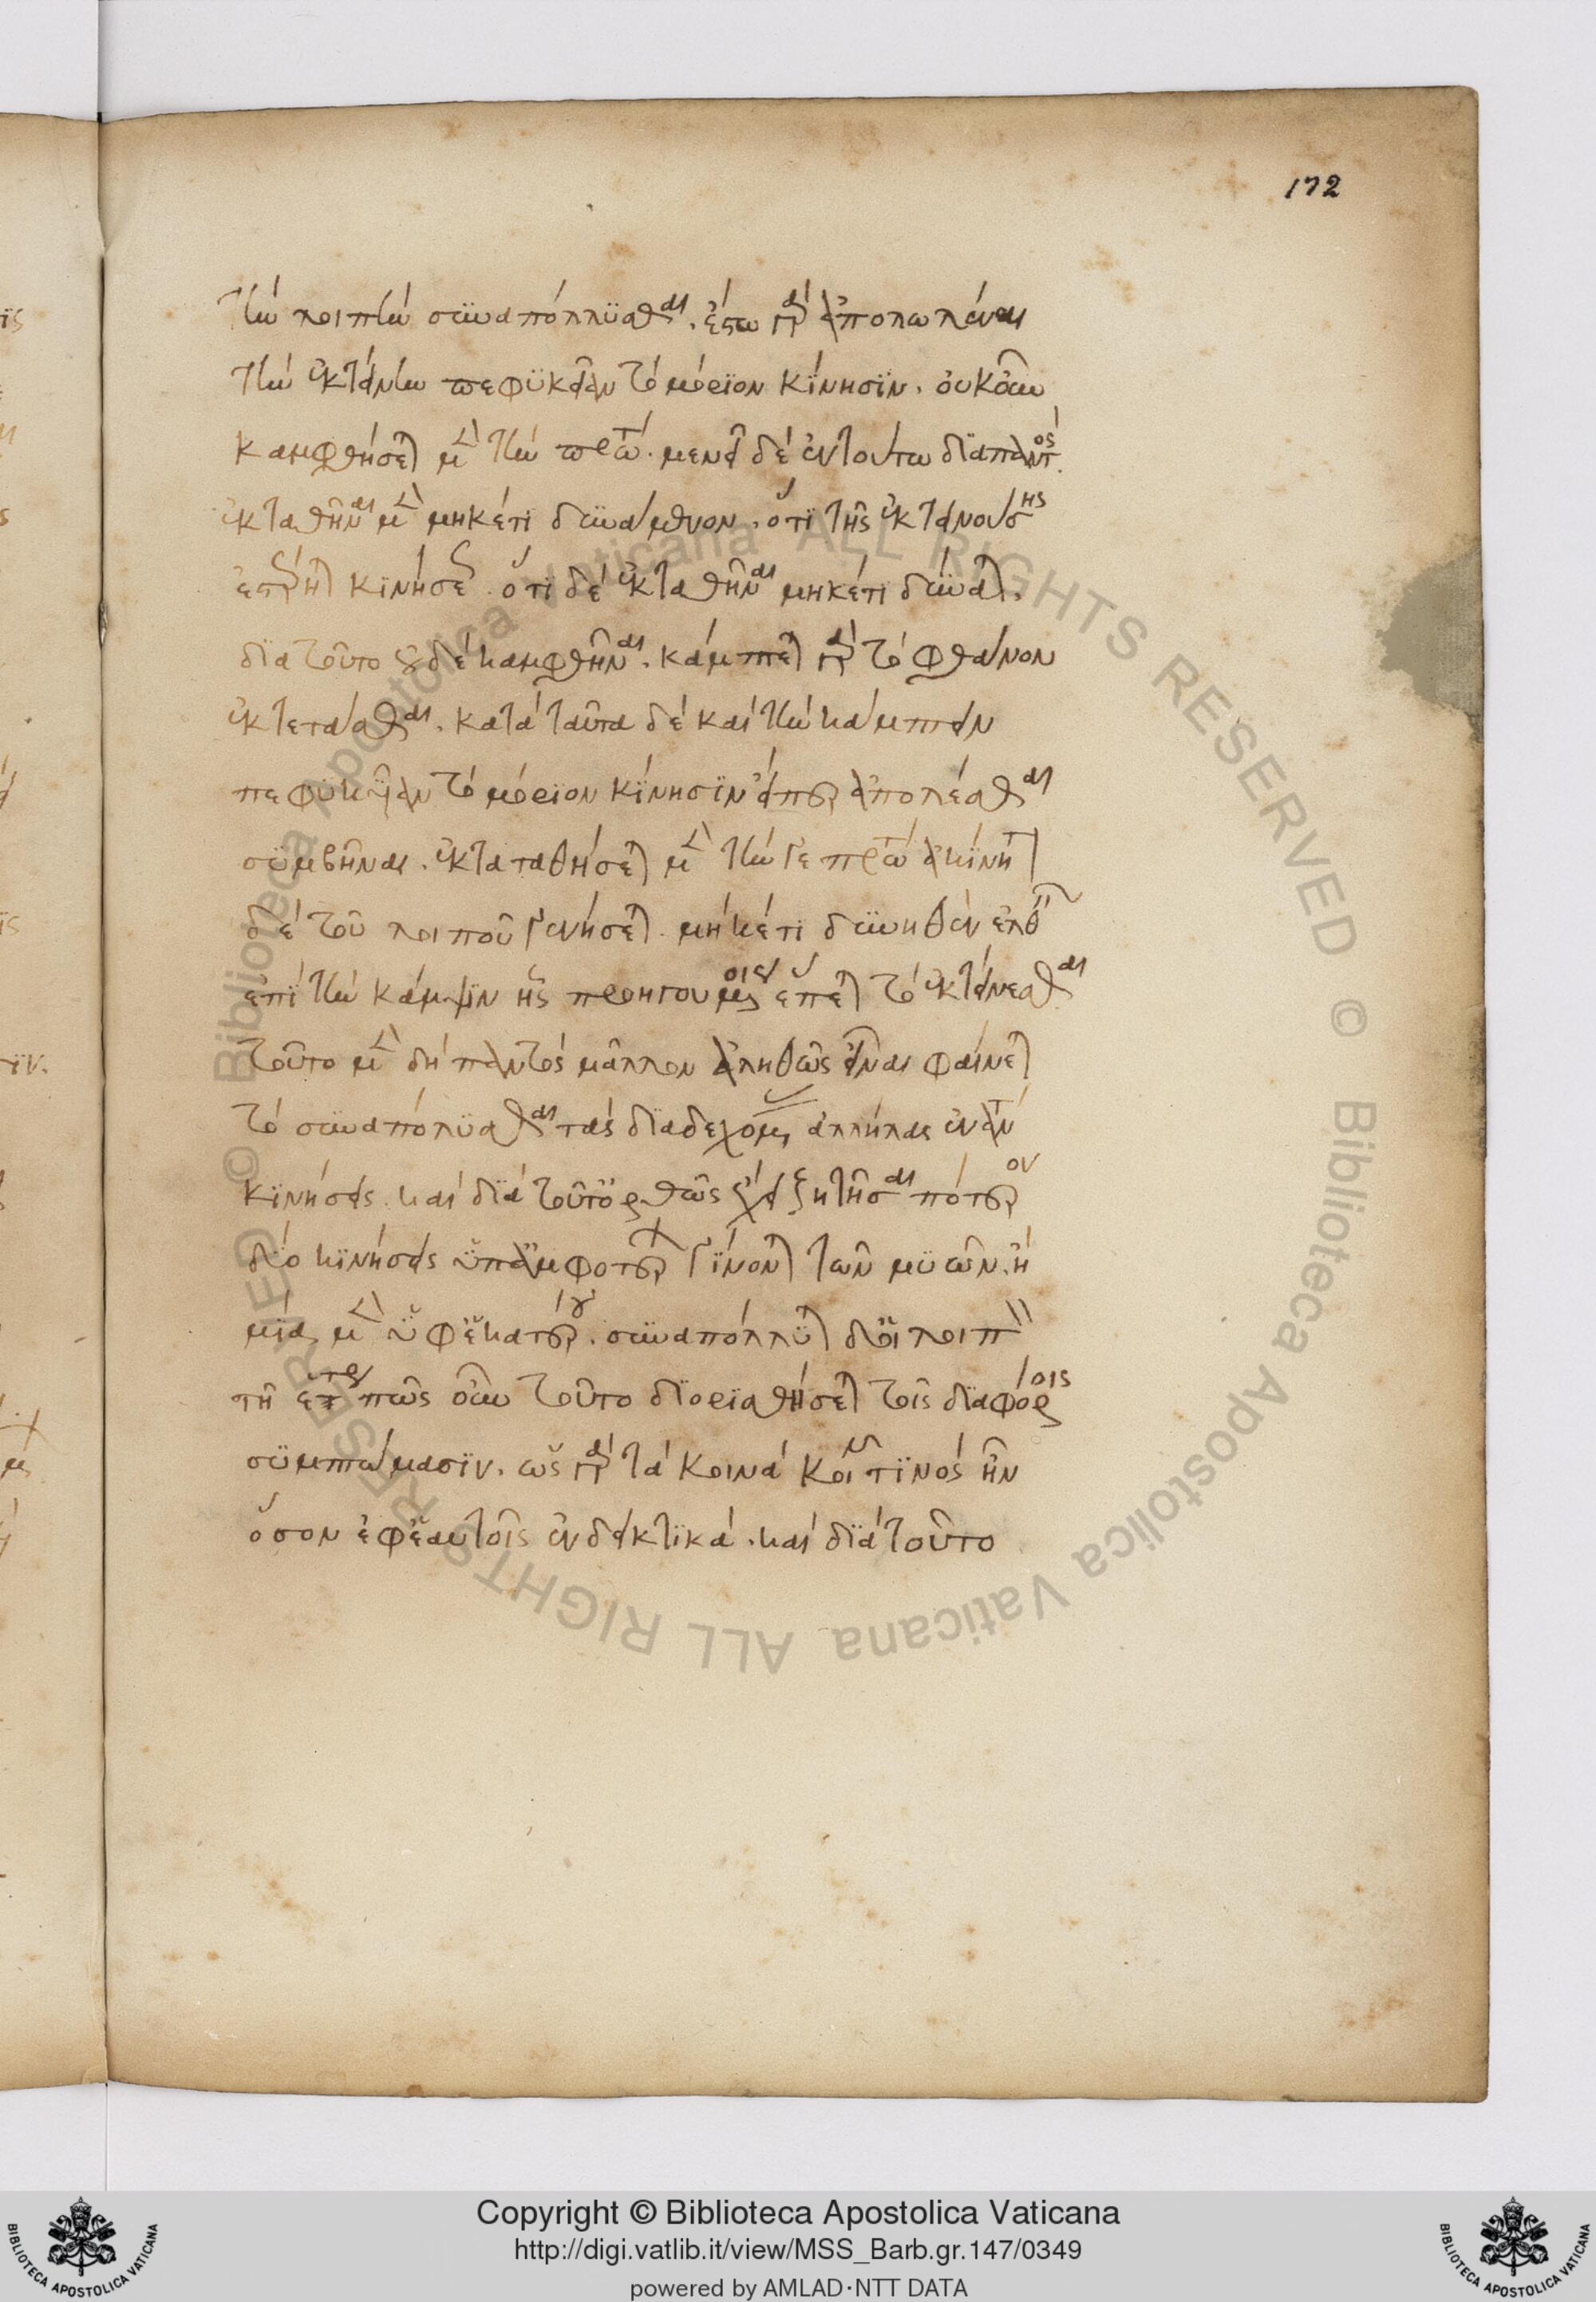 172
τὴν λοιπὴν συναπόλλυσθαι. ἔστω γὰρ ἀπολωλέναι
τὴν ἐκτείνειν πεφυκυῖαν τὸ μόριον κίνησιν. οὐκοῦν
καμφθήσεται μὲν τὴν πρώτην. μενεῖ δὲ ἐν τούτω διαπαντός
ἐκταθῆναι μὲν μηκέτι δυνάμενον. ὅτι τῆς ἐκτεινούσης
ἐστέρηται κινήσεως. ὅτι δὲ ἐκταθῆναι μηκέτι δύναται.
δια τοῦτο οὐδὲ καμφθῆναι. κάμπτεται γὰρ τὸ φθάνον
ἐκτετάσθαι. κατὰ ταῦτα δὲ καὶ τὴν κάμπτειν
πεφυκυῖαν τὸ μόριον κίνησιν εἴπερ ἀπολέσθαι
συμβῆναι. ἐκταταθήσεται μὲν τήν γε πρώτην ἀκίνητον
δὲ τοῦ λοιποῦ γενήσεται. μηκέτι δυνηθὲν ἐλθεῖν
ἐπὶ τὴν κάμψιν ἧς προηγουμένης ἕπεται τὸ ἐκτείνεσθαι
τοῦτο μὲν δὴ παντὸς μᾶλλον ἀληθῶς εἶναι φαίνεται
τὸ συναπόλυσθαι τὰς διαδεχομένας ἀλλήλας ἐναντίας
κινήσεις. καὶ διὰ τοῦτο ὀρθῶς ἔχει ζητῆσαι πότερον
δύο κινήσεις ὑπ' ἀμφοτέρων γίνονται τῶν μυῶν. ἢ
μία μὲν ὑφ' ἑκατέρου. συναπόλλυται δὲ ἡ λοιπὴ
τῆ ἑτέρα πῶς οὖν τοῦτο διορισθήσεται τοῖς διαφόροις
συμπτώμασιν. ὡς γὰρ τὰ κοινὰ κοινοῦ τινος ἦν
ὅσον ἐφ' ἑαυτοῖς ἐνδεικτικά. καὶ διὰ τοῦτο
Copyright © Biblioteca Apostolica Vaticana
http://digi.vatlib.it/view/MSS_Barb.gr.147/0349
powered by AMLAD·NTT DATA